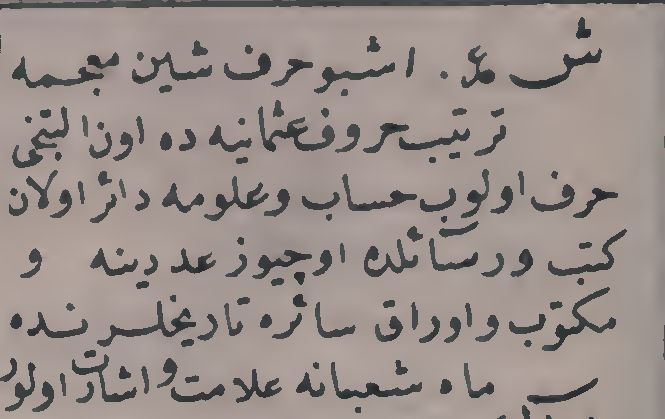 ش ع. اشبو حرف شين معجمه
ترتيب حروف عثمانيه ده اون التنجى
حرف اولوب حساب وعلومه دائر اولان
كتب و رسائلده اوچيوز عددينه و
مكتوب واوراق سائره تاريخلرنده
ماه شعبانه علامت و اشارت اولور